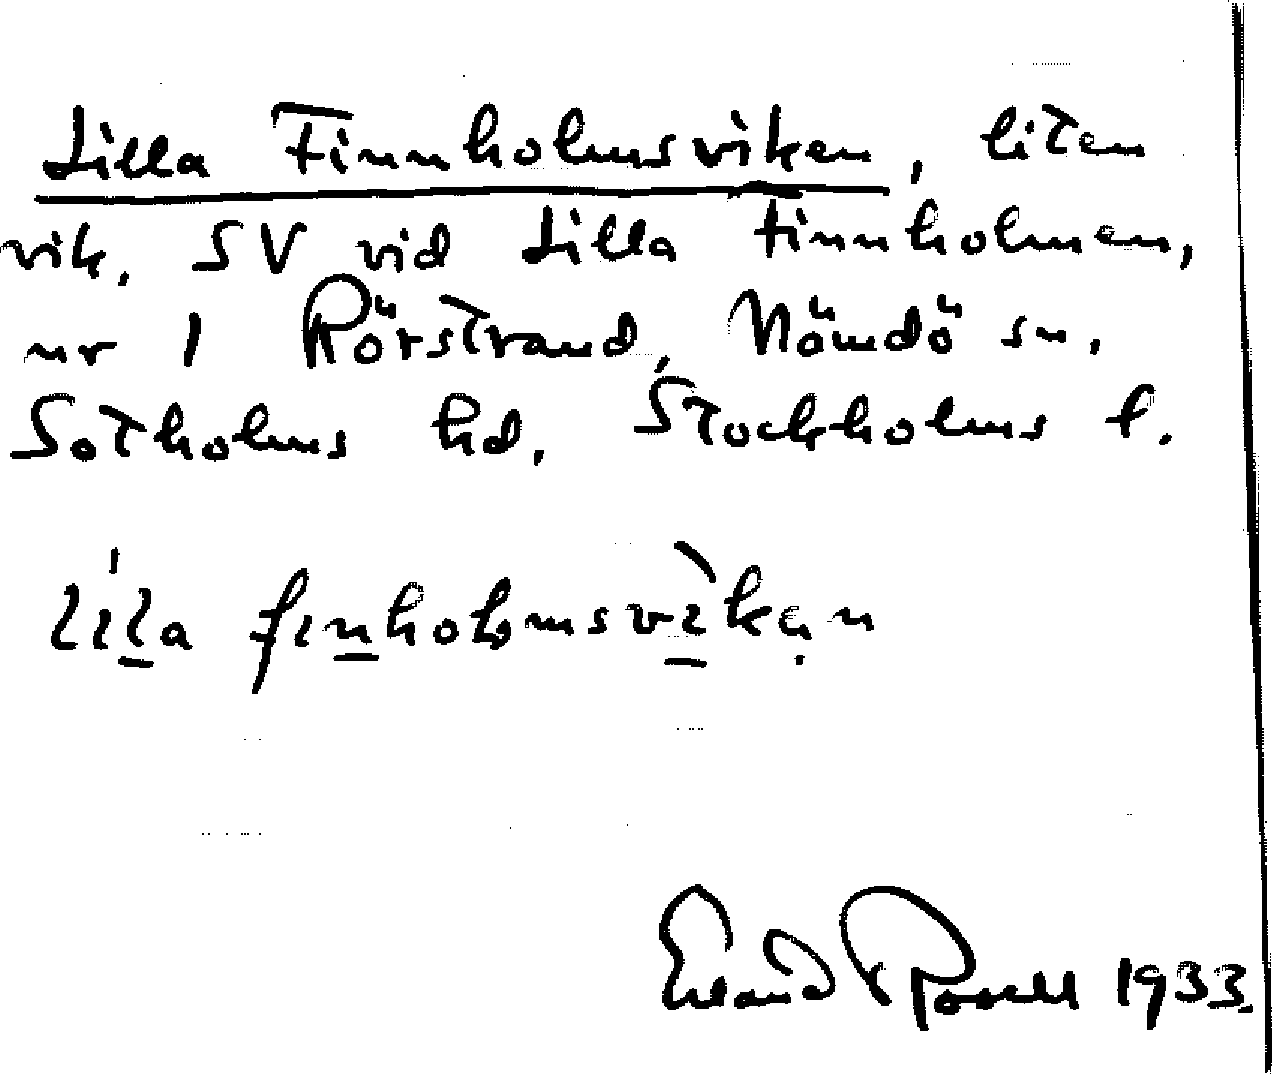 Lilla Finnholmsviken, liten
vik, SV vid Lilla Finnholmen,
nr 1 Rörstrand, Nämdö sn.
Sotholms hd, Stockholms l.
lila finholmsvìkạn
Erland Rosell 1933.